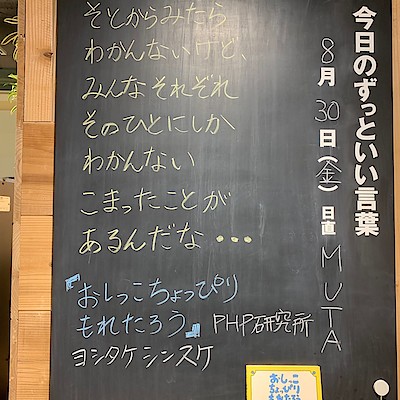 今日のずっといい言葉
8月30日(金) 日直 MUTA
そとからみたら
わかんないけど、
みんなそれぞれ
そのひとにしか
わかんない
こまったことが
あるんだな…
『おしっこちょっぴり
もれたろう』PHP研究所
ヨシタケシンスケ
おしっこ
ちょっぴり
もれたろう